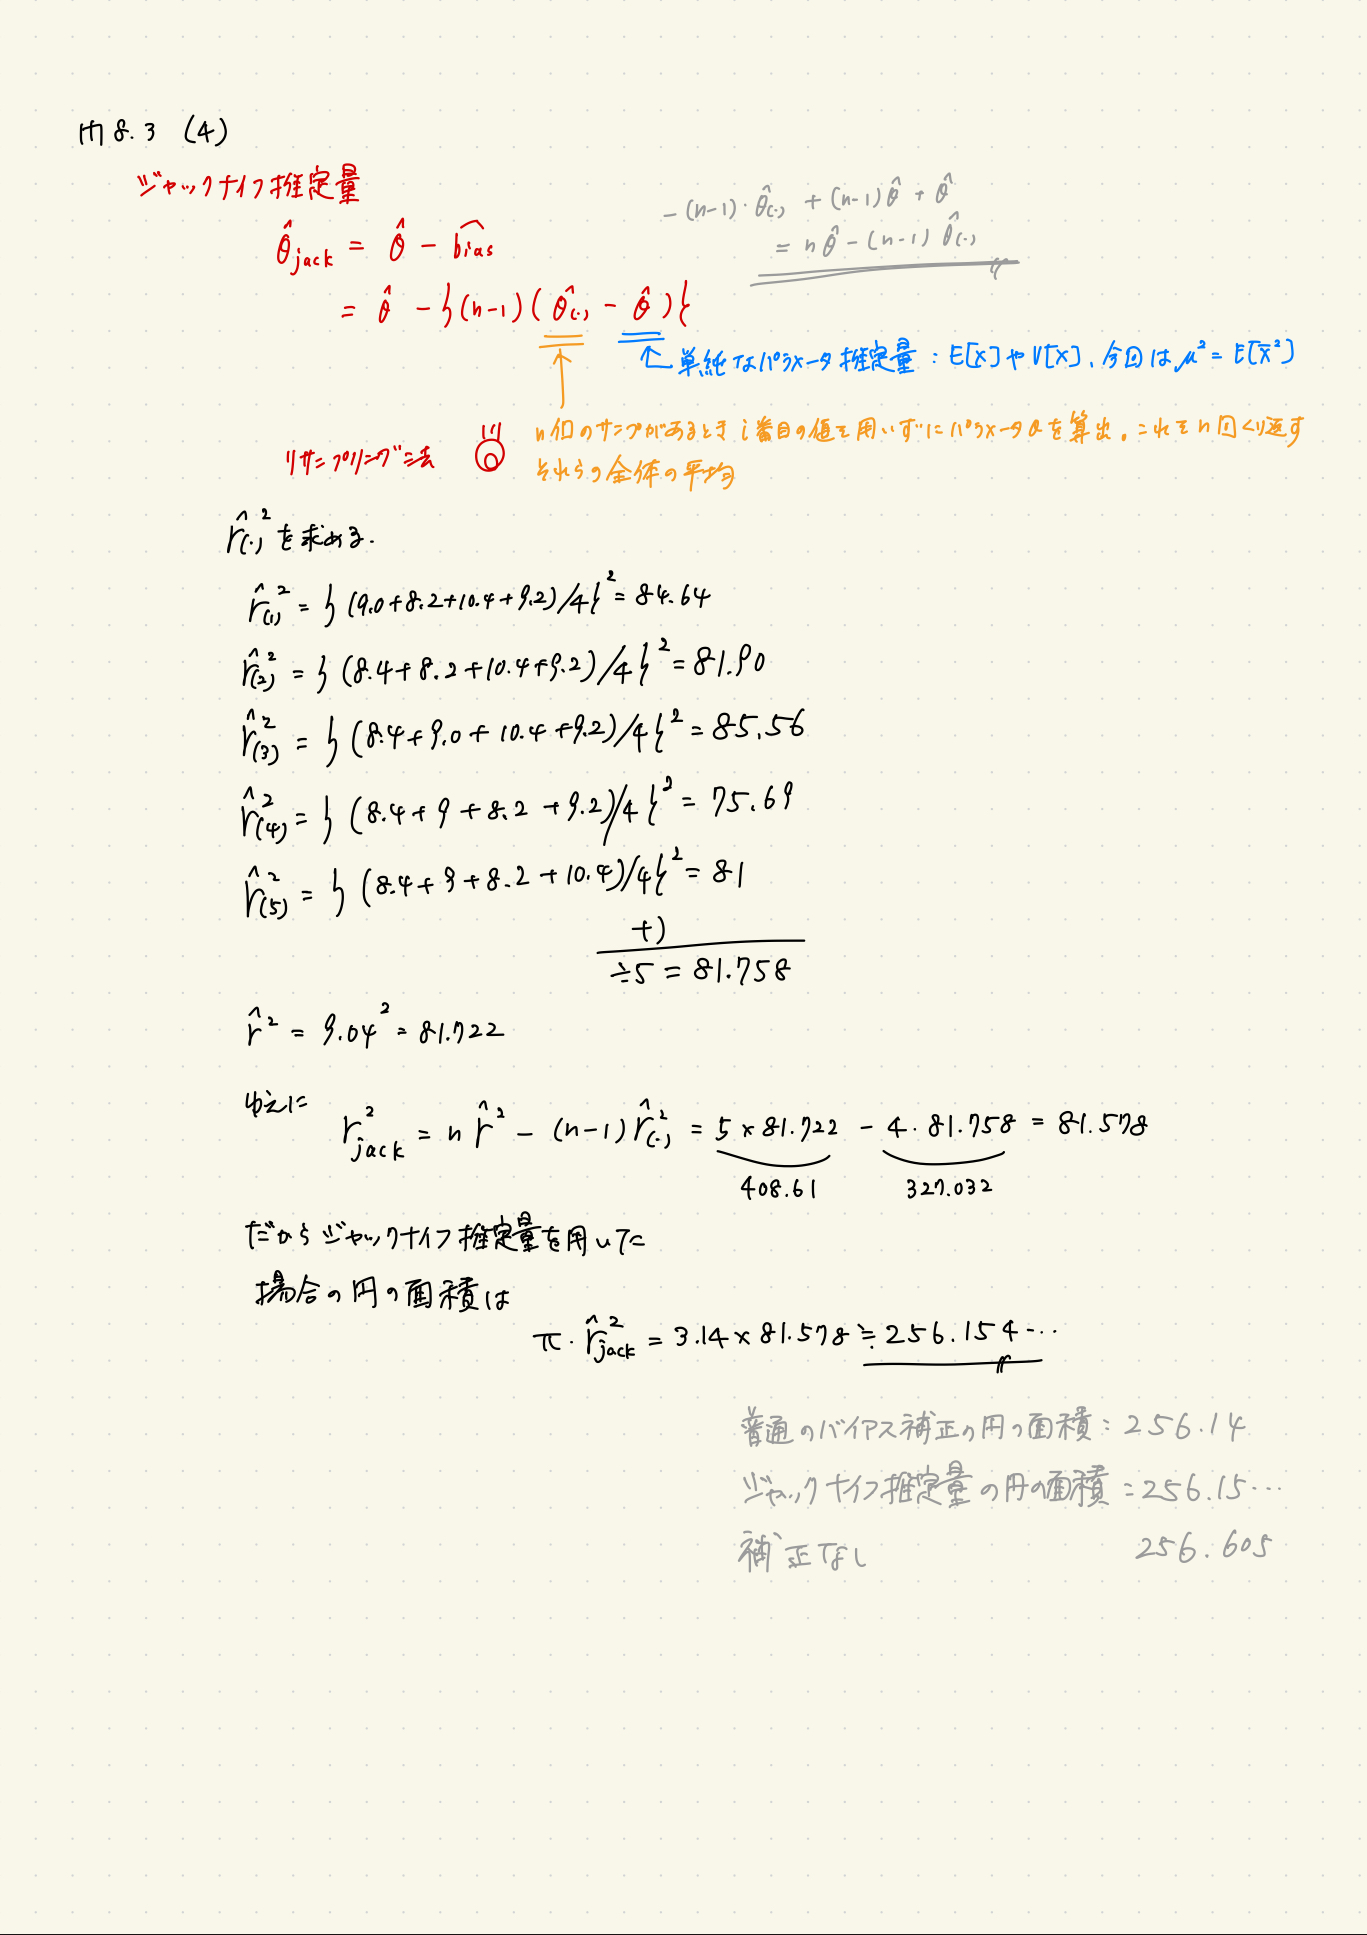 問8.3 (4)
ジャックナイフ推定量
θ̂jack = θ̂ - bias^
= θ̂ - {(n-1)(θ̂(・) - θ̂)}
-(n-1)・θ̂(・) + (n-1)θ̂ + θ̂
= nθ̂ - (n-1)θ̂(・)
単純なパラメータ推定量:E[X]やV[X]、今回はμ² = E[X̄²]
n個のサンプルがあるときi番目の値を用いずにパラメータθを算出。これをn回くり返す
それらの全体の平均
リサンプリング法
r̂(・)²を求める.
r̂(1)² = {(9.0+8.2+10.4+9.2)/4}² = 84.64
r̂(2)² = {(8.4+8.2+10.4+9.2)/4}² = 81.90
r̂(3)² = {(8.4+9.0+10.4+9.2)/4}² = 85.56
r̂(4)² = {(8.4+9+8.2+9.2)/4}² = 75.69
r̂(5)² = {(8.4+9+8.2+10.4)/4}² = 81
+)
÷5 = 81.758
r̂² = 9.04² = 81.722
ゆえに
r²jack = n r̂² - (n-1) r̂(・)² = 5×81.722 - 4・81.758 = 81.578
408.61 327.032
だからジャックナイフ推定量を用いた
場合の円の面積は
π・r̂²jack = 3.14×81.578 ≒ 256.154…
普通のバイアス補正の円の面積:256.14
ジャックナイフ推定量の円の面積:256.15…
補正なし 256.605